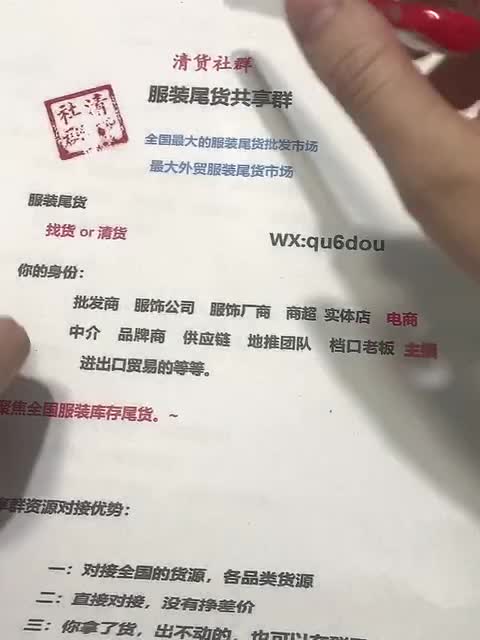 清货社群
服装尾货共享群
清
社
群
全国最大的服装尾货批发市场
最大外贸服装尾货市场
服装尾货
找货 or 清货
WX:qu6dou
你的身份：
批发商 服饰公司 服饰厂商 商超 实体店 电商
中介 品牌商 供应链 地推团队 档口老板 主播
进出口贸易的等等。
聚焦全国服装库存尾货。~
享群资源对接优势：
一：对接全国的货源，各品类货源
二：直接对接，没有挣差价
三：你拿了货，出不动的，也可以在群